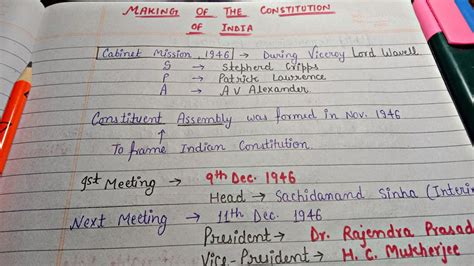 MAKING OF THE CONSTITUTION
OF INDIA
Cabinet Mission, 1946 → During Viceroy Lord Wavell
S → Stepherd Cripps
P → Patrick Lawrence
A → A V Alexander
Constituent Assembly was formed in Nov. 1946
↑
To frame Indian Constitution.
1st Meeting → 9th Dec. 1946
Head → Sachidanand Sinha (Interi
Next Meeting → 11th Dec. 1946
President → Dr. Rajendra Prasad
Vice-President → H. C. Mukherjee